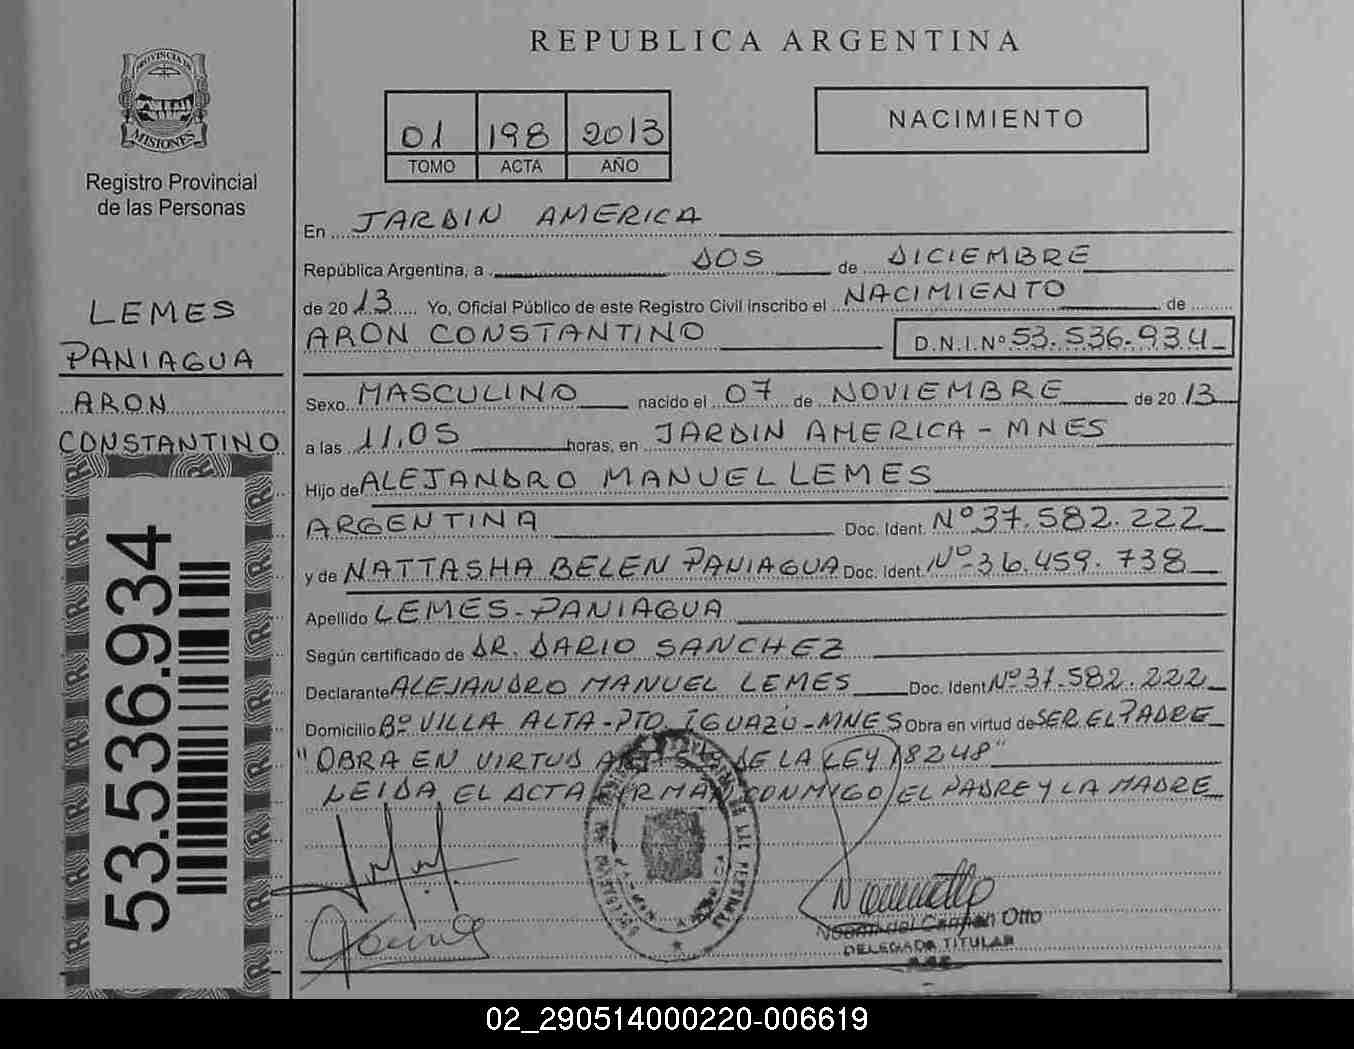 REPUBLICA ARGENTINA
PROVINCIA DE
MISIONES
Registro Provincial
de las Personas
01 198 2013
TOMO ACTA AÑO
NACIMIENTO
LEMES
PANIAGUA
ARON
CONSTANTINO
53.536.934
En JARDIN AMERICA
República Argentina, a DOS de DICIEMBRE
de 2013 Yo, Oficial Público de este Registro Civil inscribo el NACIMIENTO de
ARON CONSTANTINO D.N.I.Nº 53.536.934
Sexo MASCULINO nacido el 07 de NOVIEMBRE de 2013
a las 11.05 horas, en JARDIN AMERICA - MNES
Hijo de ALEJANDRO MANUEL LEMES
ARGENTINA Doc. Ident. Nº 37.582.222
y de NATTASHA BELEN PANIAGUA Doc. Ident. Nº 36.459.738
Apellido LEMES-PANIAGUA
Según certificado de DR. DARIO SANCHEZ
Declarante ALEJANDRO MANUEL LEMES Doc. Ident Nº 37.582.222
Domicilio Bº VILLA ALTA-PTO IGUAZÚ-MNES Obra en virtud de SER EL PADRE
"OBRA EN VIRTUD DE LA LEY 18248"
LEIDA EL ACTA FIRMAN CONMIGO EL PADRE Y LA MADRE
Noemi del Carmen Otto
DELEGADA TITULAR
02_290514000220-006619